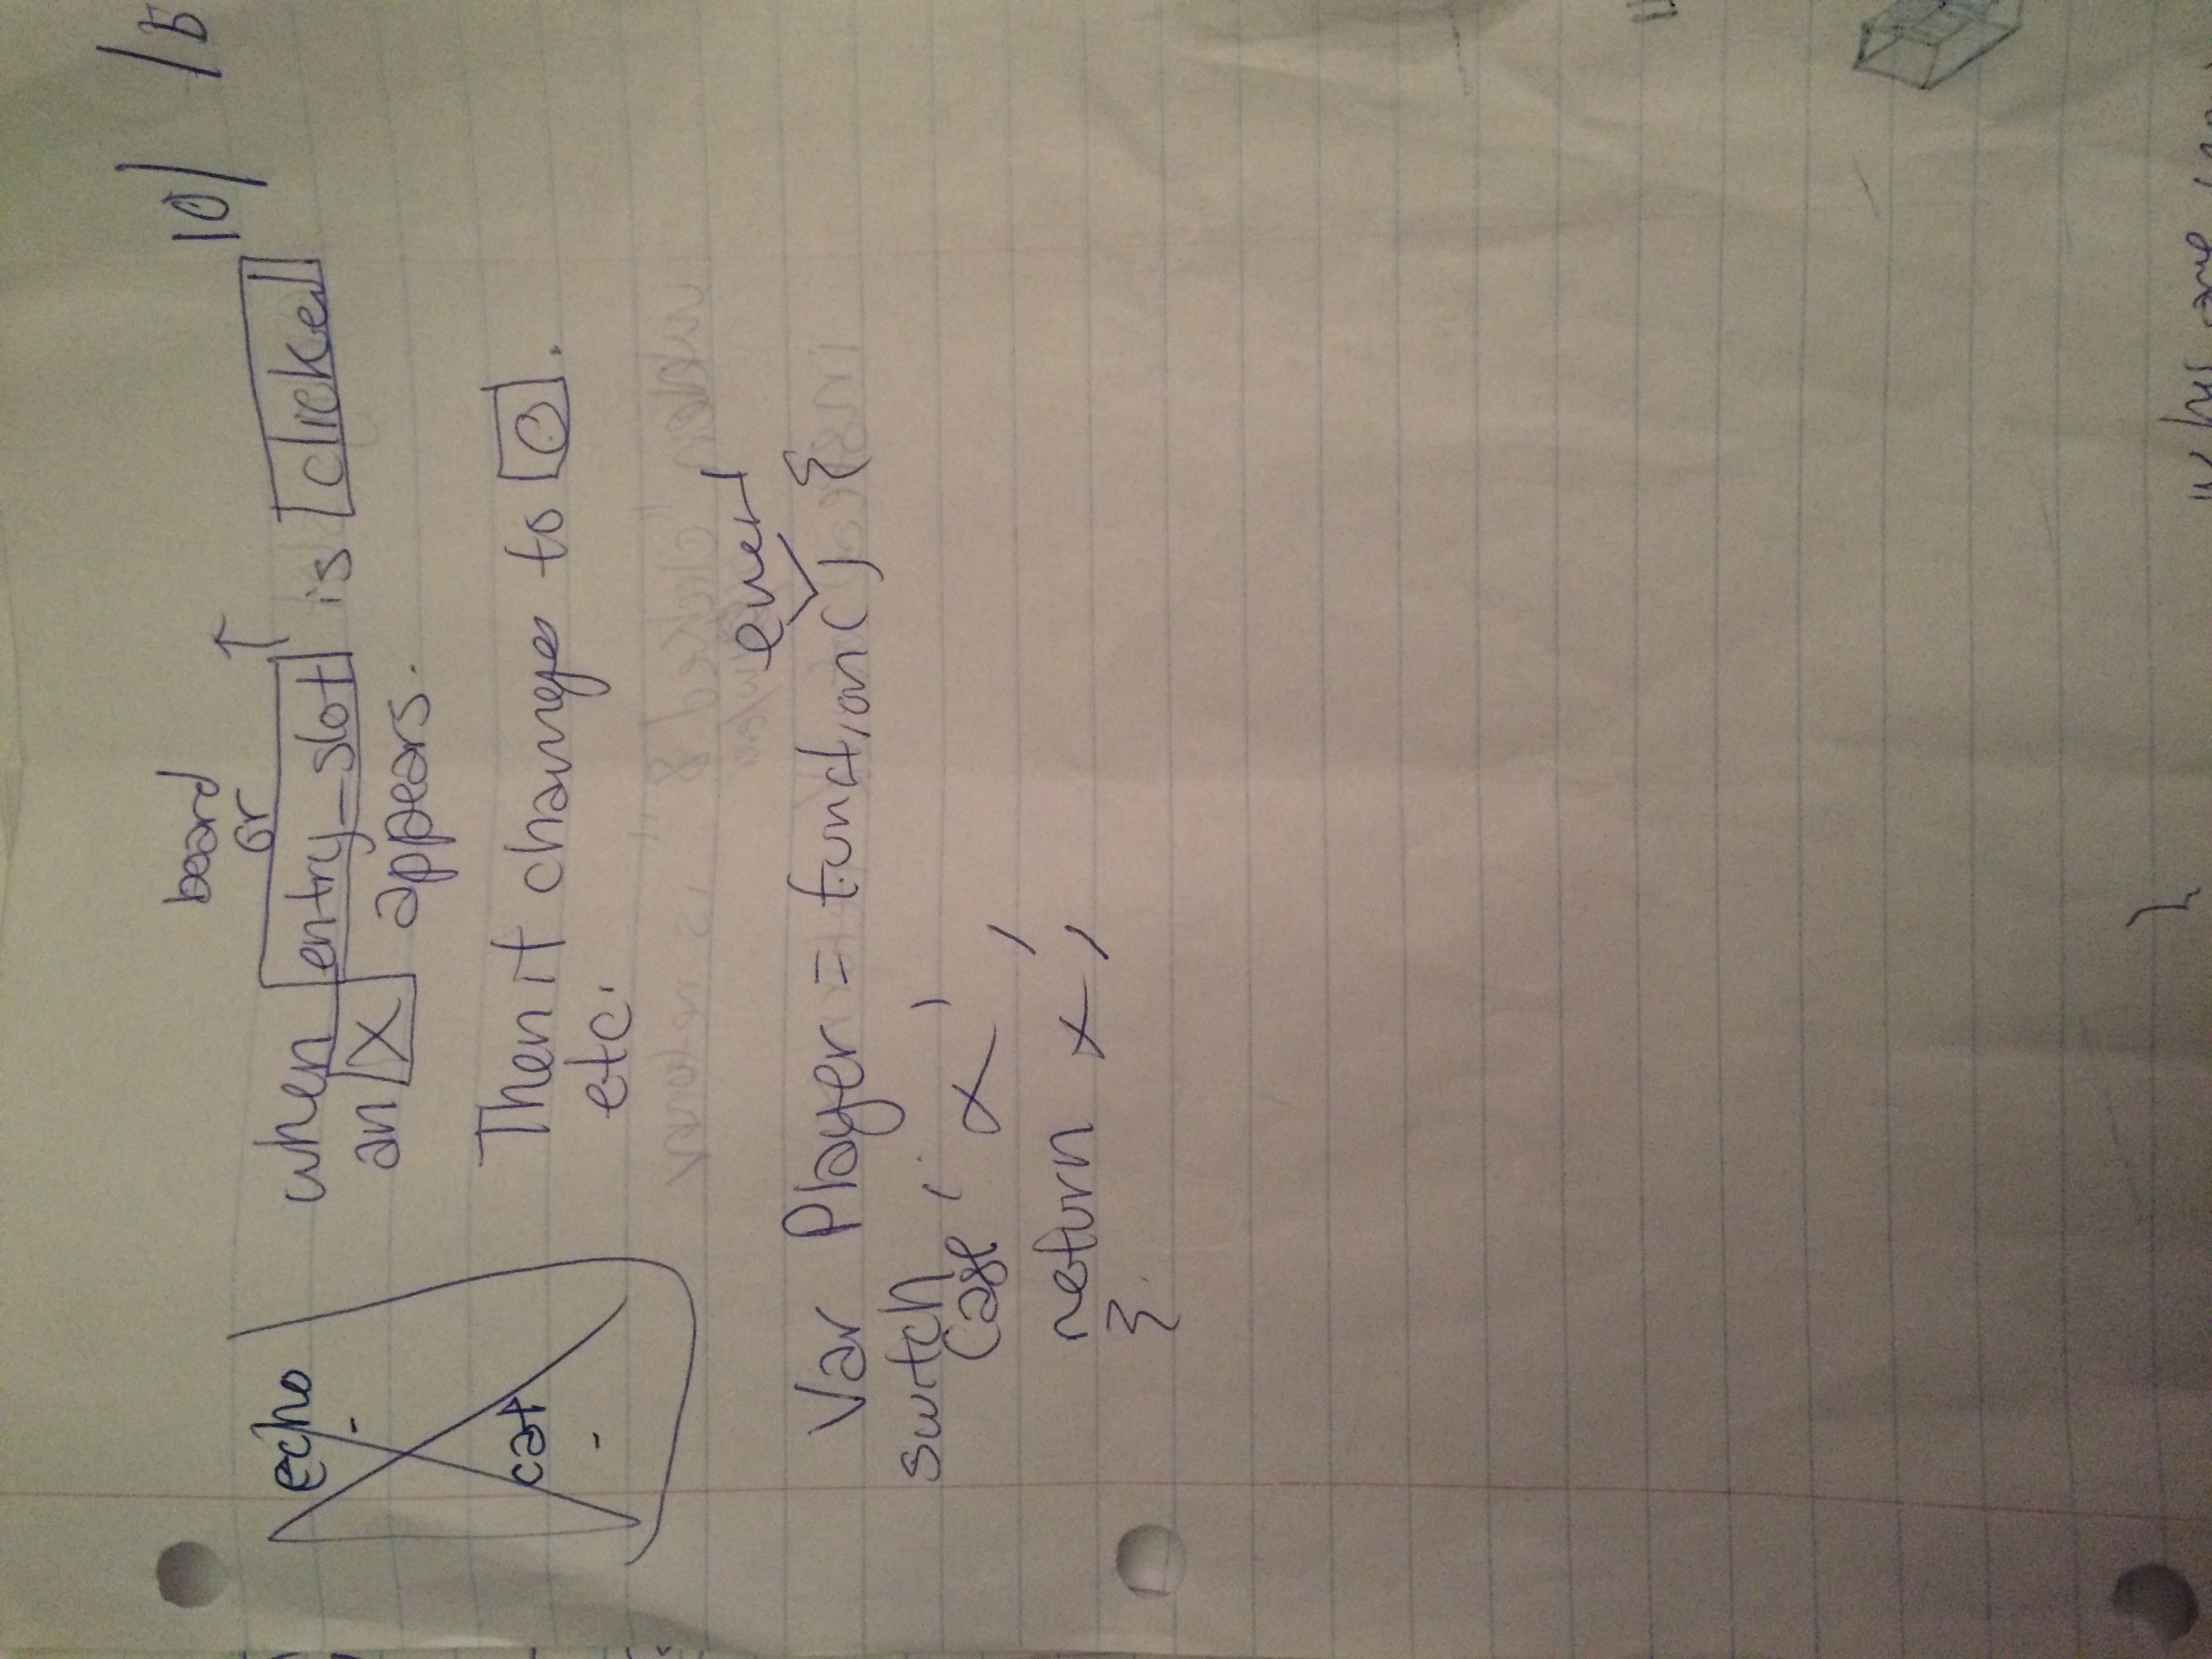 10/ /15
board
or ↑
when entry_slot is clicked
an X appears.
Then it changes to O.
etc.
echo
-
cat
-
event
Var Player = function() {
switch
Case ' x ',
return x,
}
}